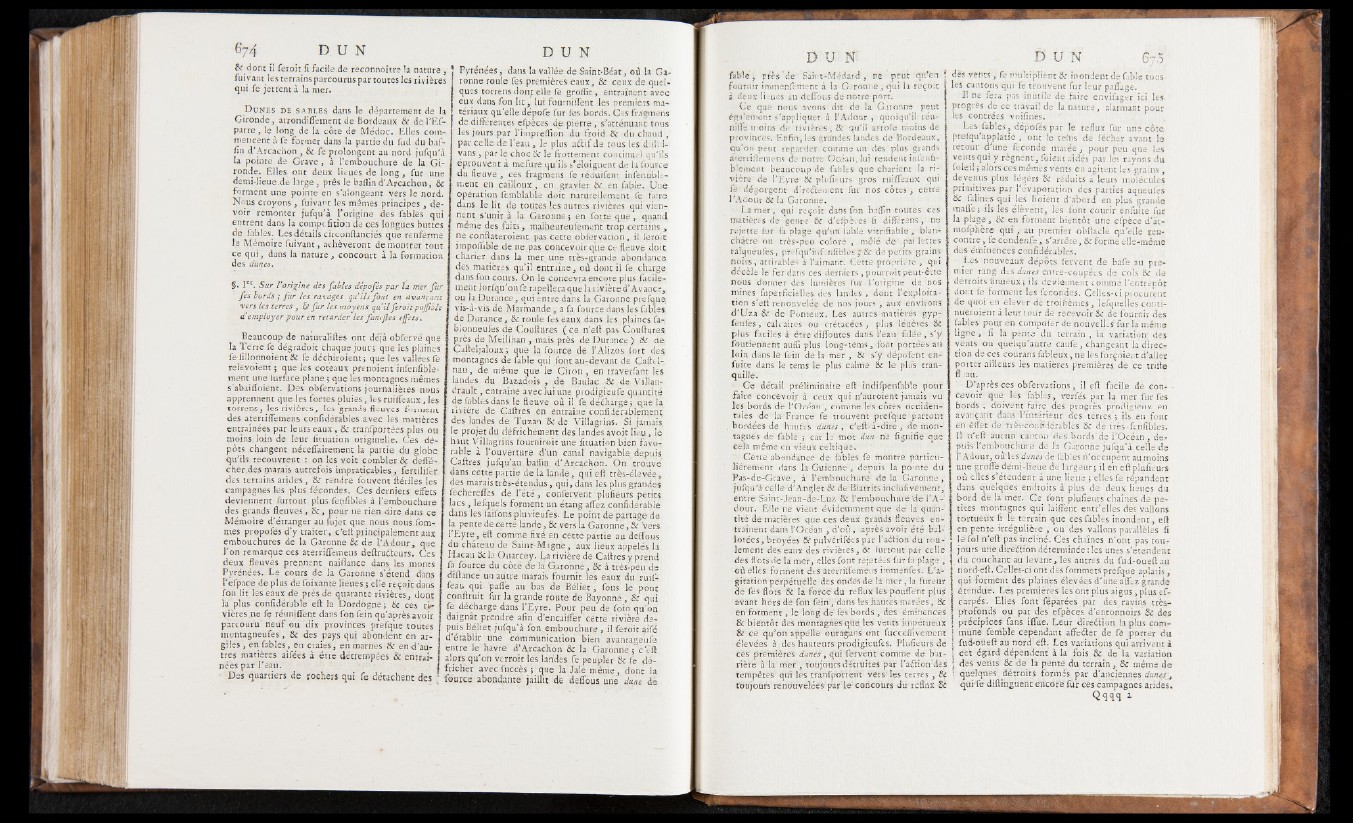 674 D U N
& dont il seroit si facile de reconnoître la nature,
suivant les terrains parcourus par toutes les rivières
qui se jettent à la mer.
DUNES DE SABLES dans le département de la
Gironde, arrondissement de Bordeaux & de l'Es-
parre, le long de la côte de Médoc. Elles com-
mencent à se former dans la partie du sud du bas-
sin d'Arcachon, & se prolongent au nord jusqu'à
la pointe de Grave, à l'embouchure de la Gi-
ronde. Elles ont deux lieues de long, sur une
demi-lieue de large, près le bassin d'Arcachon, &
forment une pointe en s'alongeant vers le nord.
Nous croyons, suivant les mêmes principes, de-
voir remonter jusqu'à l'origine des sables qui
entrent dans la composition de ces longues buttes
de sables. Les détails circonstanciés que renferme
le Mémoire suivant, achèveront de montrer tout
ce qui, dans la nature, concourt à la formation
des dunes.
§. Ier. Sur l'origine des sables déposés par la mer sur
ses bords; sur les ravages qu'ils font en avançant
vers les terres, & sur les moyens qu'il seroit possible
d'employer pour en retarder les funestes effets.
Beaucoup de naturalistes ont déjà observé que
la Terre se dégradoit chaque jour; que les plaines
se sillonnoient & se déchiroient; que les vallées se
relevoient; que les coteaux prenoient insensible-
ment une surface plane; que les montagnes mêmes
s'abaissoient. Des observations journalières nous
apprennent que les fortes pluies, les ruisseaux, les
torrens, les rivières, les grands fleuves forment
des aterrissemens considérables avec les matières
entraînées par leurs eaux, & transportées plus ou
moins loin de leur situation originelle. Ces dé-
pôts changent nécessairement la partie du globe
qu'ils recouvrent : on les voit combler & dessé-
cher des marais autrefois impraticables, fertiliser
des terrains arides, & rendre souvent stériles les
campagnes les plus fécondes. Ces derniers effets
deviennent surtout plus sensibles à l'embouchure
des grands fleuves, &, pour ne rien dire dans ce
Mémoire d'étranger au sujet que nous nous som-
mes proposés d'y traiter, c'est principalement aux
embouchures de la Garonne & de l'Adour, que
l'on remarque ces aterrissemens destructeurs. Ces
deux fleuves prennent naissance dans les monts
Pyrénées. Le cours de la Garonne s'étend dans
l'espace de plus de soixante lieues; elle reçoit dans
son lit les eaux de près de quarante rivières, dont
la plus considérable est la Dordogne; & ces ri-
vières ne se réunissent dans son sein qu'après avoir
parcouru neuf ou dix provinces presque toutes
montagneuses, & des pays qui abondent en ar-
giles, en sables, en craies, en marnes & en d'au-
tres matières aisées à être détrempées & entraî-
nées par l'eau.
Des quartiers de rochers qui se détachent des
D U N
Pyrénées, dans la vallée de Saint-Béat, où la Ga-
ronne roule ses premières eaux, & ceux de quel-
ques torrens dont elle se grossit, entraînent avec
eux dans son lit, lui fournissent les premiers ma-
tériaux qu'elle dépose sur ses bords. Ces fragmens
de différentes espèces de pierre, s'atténuant tous
les jours par l'impression du froid & du chaud,
par celle de l'eau, le plus actif de tous les dissol-
vans, par le choc & le frottement continuel qu'ils
éprouvent à mesure qu'ils s'éloignent de la source
du fleuve, ces fragmens se réduisent insensible-
ment en cailloux, en gravier & en sable. Une
opération semblable doit naturellement se faire
dans le lit de toutes les autres rivières qui vien-
nent s'unir à la Garonne; en sorte que, quand
même des faits, malheureusement trop certains,
ne constateroient pas cette observation, il seroit
impossible de ne pas concevoir que ce fleuve doit
charier dans la mer une très-grande abondance
des matières qu'il entraîne, où dont il se charge
dans son cours. On le concevra encore plus facile-
ment lorsqu'on se rapellera que la rivière d'Avance,
ou la Durance, qui entre dans la Garonne presque
vis-à-vis de Marmande, a sa source dans les sables
de Durance, & roule ses eaux dans les plaines sa-
blonneuses de Coustures (ce n'est pas Coustures
près de Meilhan, mais près de Durance) & de
Casteljaloux; que la source de l'Alizos sort des
montagnes de sable qui sont au-devant de Castel-
nau, de même que le Ciron, en traversant les
landes du Bazadois, de Baulac & de Villan-
drault, entraîne avec lui une prodigieuse quantité
de sables dans le fleuve où il se décharge; que la
rivière de Castres en entraîne considérablement
des landes de Tuzan & de Villagrins. Si jamais
le projet du défrichement des landes avoit lieu, le
haut Villagrins fourniroit une situation bien favo-
rable à l'ouverture d'un canal navigable depuis
Castres jusqu'au bassin d'Arcachon. On trouve
dans cette partie de la lande, qui est très-élevée,
des marais très-étendus, qui, dans les plus grandes
sécheresses de l'été, conservent plusieurs petits
lacs, lesquels forment un étang assez considérable
dans les saisons pluvieuses. Le point de partage de
la pente de cette lande, & vers la Garonne, & vers
l'Eyre, est comme fixé en cette partie au dessous
du château de Saint-Magne, aux lieux appelés la
Hacau & la Ouarcey. La rivière de Castres y prend
sa source du côté de la Garonne, & à très-peu de
distance un autre marais fournit les eaux du ruis-
seau qui passe au bas de Béliet, sous le pont
construit sur la grande route de Bayonne, & qui
se décharge dans l'Eyre. Pour peu de soin qu'on
daignât prendre afin d'encaisser cette rivière de-
puis Béliet jusqu'à son embouchure, il seroit aisé
d'établir une communication bien avantageuse
entre le havre d'Arcachon & la Garonne; c'est
alors qu'on verroit les landes se peupler & se dé-
fricher avec succès; que la Jale même, dont la
source abondante jaillit de dessous une dune de
D U N
sable, près de Saint-Médard, ne peut qu'en
fournir immensément à la Garonne, qui la reçoit
à deux lieues au dessous de notre port.
Ce que nous avons dit de la Garonne peut
également s'appliquer à l'Adour, quoiqu'il réu-
nisse moins de rivières, & qu'il arrose moins de
provinces. Enfin, les grandes landes de Bordeaux,
qu'on peut regarder comme un des plus grands
aterrissemens de notre Océan, lui rendent insensi-
blement beaucoup de sables que charient la ri-
vière de l'Eyre & plusieurs gros ruisseaux qui
se dégorgent directement sur nos côtes, entre
l'Adour & la Garonne.
La mer, qui reçoit dans son bassin toutes ces
matières de genre & d'espèces si différens, ne
rejette sur sa plage qu'un sable vitrifiable, blan-
châtre ou très-peu coloré, mêlé de paillettes
talqueuses, presqu'insensibles, & de petits grains
noirs, attirables à l'aimant. Cette propriété, qui
décèle le fer dans ces derniers, pourroit peut-être
nous donner des lumières sur l'origine de nos
mines superficielles des landes, dont l'exploita-
tion s'est renouvelée de nos jours, aux environs
d'Uza & de Ponteux. Les autres matières gyp-
seuses, calcaires ou crétacées, plus légères &
plus faciles à être dissoutes dans l'eau salée, s'y
soutiennent aussi plus long-tems, sont portées au
loin dans le sein de la mer, & s'y déposent en-
suite dans le tems le plus calme & le plus tran-
quille.
Ce détail préliminaire est indispensable pour
faire concevoir à ceux qui n'auroient jamais vu
les bords de l'Océan, comme les côtes occiden-
tales de la France se trouvent presque partout
bordées de hautes dunes, c'est-à-dire, de mon-
tagnes de sable; car le mot dun ne signifie que
cela même en vieux celtique.
Cette abondance de sables se montre particu-
lièrement dans la Guienne, depuis la pointe du
Pas-de-Grave, à l'embouchure de la Garonne,
jusqu'à celle d'Anglet & de Biarrits inclusivement,
entre Saint-Jean-de-Luz & l'embouchure de l'A-
dour. Elle ne vient évidemment que de la quan-
tité de matières que ces deux grands fleuves en-
traînent dans l'Océan, d'où, après avoir été bal-
lotées, broyées & pulvérisées par l'action du rou-
lement des eaux des rivières, & surtout par celle
des flots de la mer, elles sont rejetées sur sa plage,
où elles forment des aterrissemens immenses. L'a-
gitation perpétuelle des ondes de la mer, la fureur
de ses flots & la force du reflux les poussent plus
avant hors de son sein, dans les hautes marées, &
en forment, le long de ses bords, des éminences
& bientôt des montagnes que les vents impétueux
& ce qu'on appelle ouragans ont successivement
élevées à des hauteurs prodigieuses. Plusieurs de
ces premières dunes, qui servent comme de bar-
rière à la mer, toujours détruites par l'action des
tempêtes qui les transportent vers les terres, &
toujours renouvelées par le concours du reflux &
D U N 675
des vents, se multiplient & inondent de sable tous
les cantons qui se trouvent sur leur passage.
Il ne sera pas inutile de faire envisager ici les
progrès de ce travail de la nature, alarmant pour
les contrées voisines.
Les sables, déposés par le reflux sur une côte
presqu'applatie, ont le tems de sécher avant le
retour d'une seconde marée, pour peu que les
vents qui y règnent, soient aidés par les rayons du
soleil; alors ces mêmes vents en agitent les grains,
devenus plus légers & réduits à leurs molécules
primitives par l'évaporation des parties aqueuses
& salines qui les lioient d'abord en plus grande
masse; ils les élèvent, les font courir ensuite sur
la plage, & en forment bientôt une espèce d'at-
mosphère qui, au premier obstacle qu'elle ren-
contre, se condense, s'arrête, & forme elle-même
des éminences considérables.
Les nouveaux dépôts servent de base au pre-
mier rang des dunes entre-coupées de cols & de
détroits sinueux; ils deviennent comme l'entrepôt
dont se forment les secondes. Celles-ci procurent
de quoi en élever de troisièmes, lesquelles conti-
nueroient à leur tour de recevoir & de fournir des
sables pour en composer de nouvelles sur la même
ligne, si la pente du terrain, la variation des
vents ou quelqu'autre cause, changeant la direc-
tion de ces courans sableux, ne les forçoient d'aller
porter ailleurs les matières premières de ce triste
fléau.
D'après ces observations, il est facile de con-
cevoir que les sables, versés par la mer sur ses
bords, doivent faire des progrès prodigieux en
avançant dans l'intérieur des terres; ils en font
en effet de très-considérables & de très-sensibles.
Il n'est aucun canton des bords de l'Océan, de-
puis l'embouchure de la Garonne jusqu'à celle de
l'Adour, où les dunes de sables n'occupent au moins
une grosse demi-lieue de largeur; il en est plusieurs
où elles s'étendent à une lieue; elles se répandent
dans quelques endroits à plus de deux lieues du
bord de la mer. Ce sont plusieurs chaînes de pe-
tites montagnes qui laissent entr'elles des vallons
tortueux si le terrain que ces sables inondent, est
en pente irrégulière, ou des vallons parallèles si
le sol n'est pas incliné. Ces chaînes n'ont pas tou-
jours une direction déterminée : les unes s'étendent
du couchant au levant, les autres du sud-ouest au
nord-est. Celles-ci ont des sommets presque aplatis,
qui forment des plaines élevées d'une assez grande
étendue. Les premières les ont plus aigus, plus es-
carpés. Elles sont séparées par des ravins très-
profonds ou par des espèces d'entonnoirs & des
précipices sans issue. Leur direction la plus com-
mune semble cependant affecter de se porter du
sud-ouest au nord est. Les variations qui arrivent à
cet égard dépendent à la fois & de la variation
des vents & de la pente du terrain, & même de
quelques détroits formés par d'anciennes dunes,
qui se distinguent encore sur ces campagnes arides.
Qqqq 2